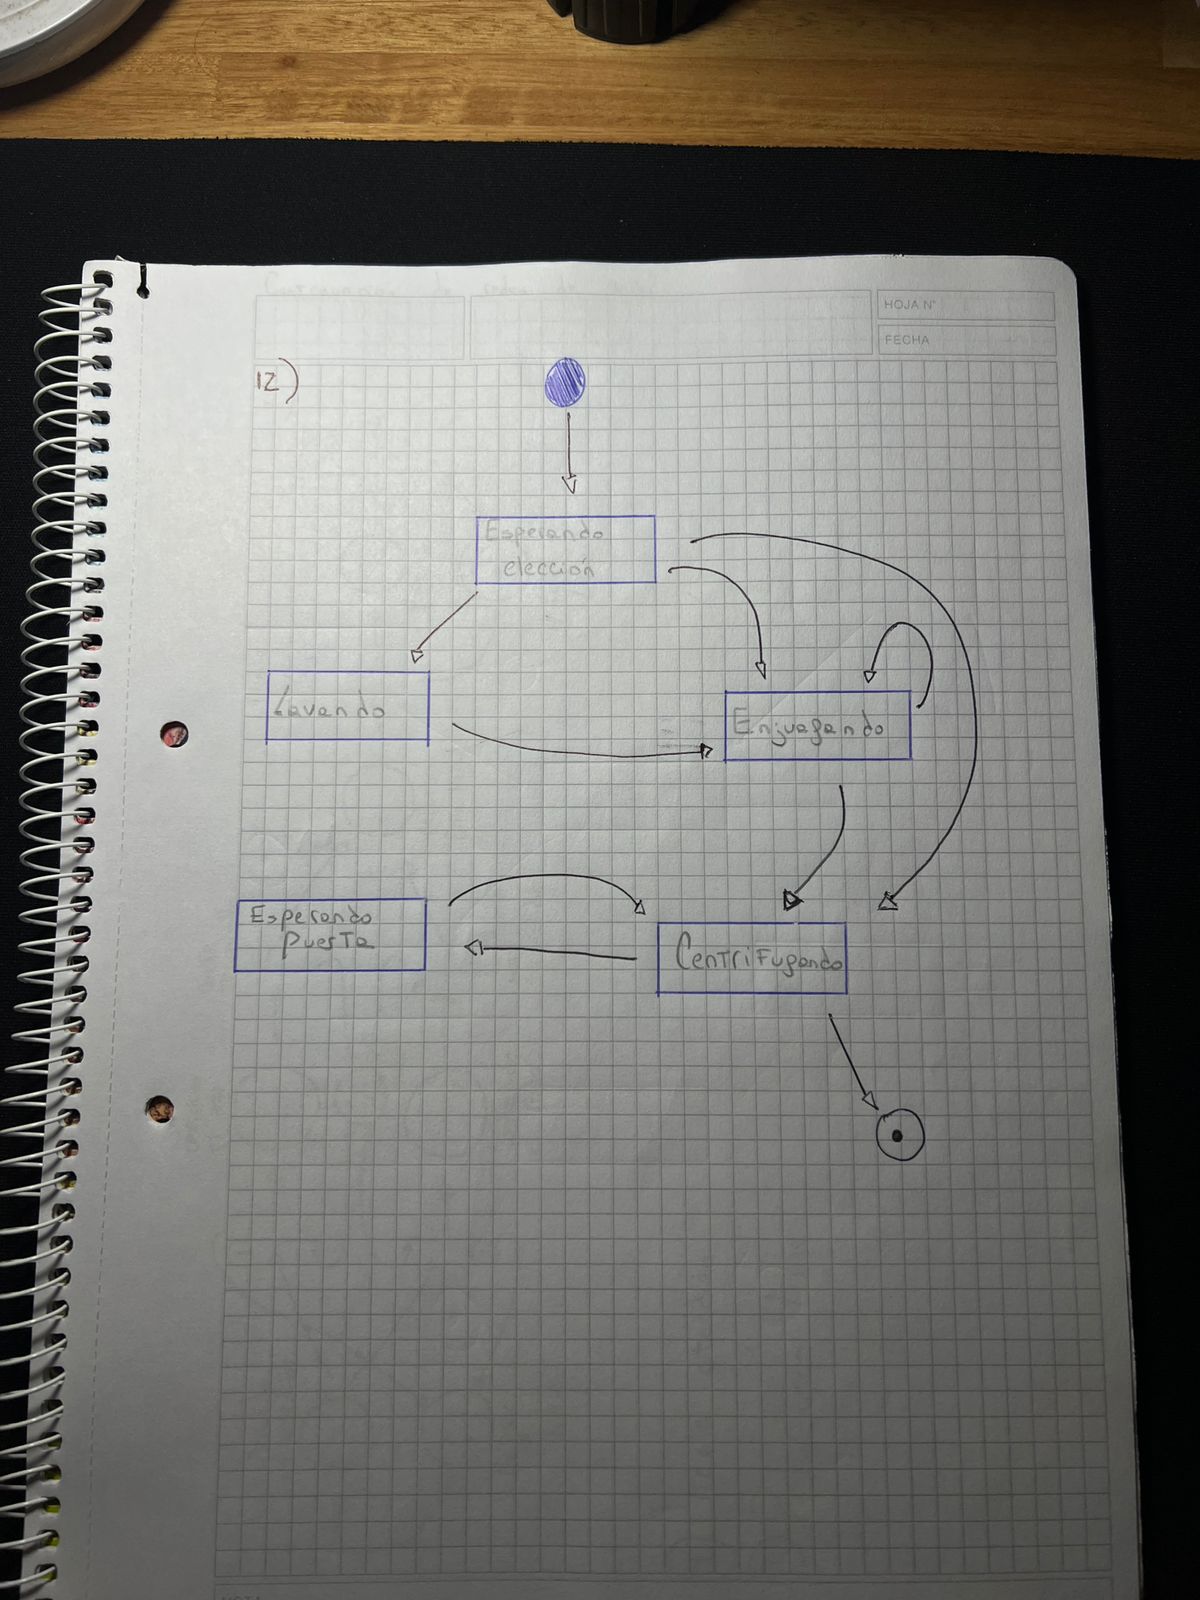 HOJA N°
FECHA
12)
Esperando
elección
Lavando
Enjuagando
Esperando
puerta
Centrifugando